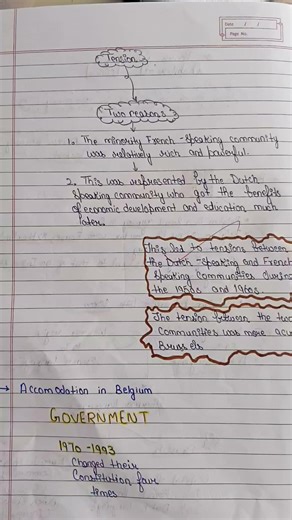 Date / /
Page No.
Tension
Two reasons
1. The minority French-speaking community
was relatively rich and powerful.
2. This was represented by the Dutch
speaking community who got the benefits
of economic development and education much
later.
This led to tensions between
the Dutch-speaking and French
speaking communities during
the 1950s and 1960s.
The tension between the two
communities was more acu
Brussels
→ Accomodation in Belgium
GOVERNMENT
1970-1993
Changed their
Constitution four
times